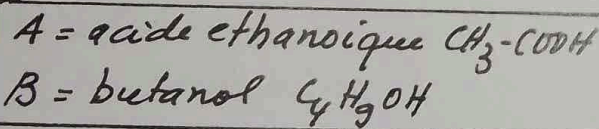 A = acide ethanoique CH₃-COOH
B = butanol C₄H₉OH